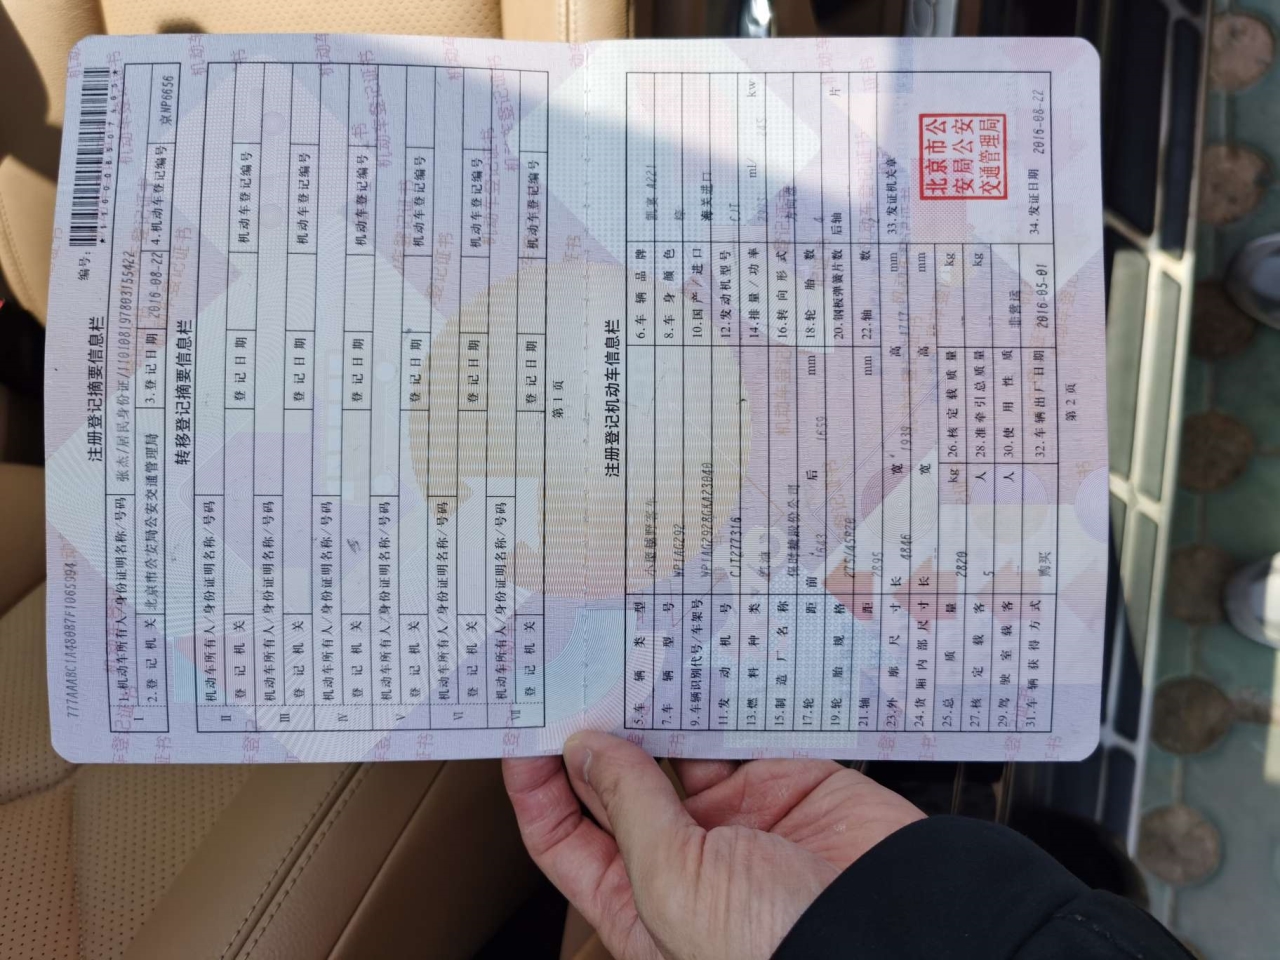 777AAABC1A48087F1065994
编号：
注册登记摘要信息栏
Ⅰ 1.机动车所有人/身份证明名称/号码 张杰/居民身份证/110108197803155422
2.登记机关 北京市公安局公安交通管理局 3.登记日期 2016-08-22 4.机动车登记编号 京NP6656
转移登记摘要信息栏
Ⅱ 机动车所有人/身份证明名称/号码
登记机关 登记日期 机动车登记编号
Ⅲ 机动车所有人/身份证明名称/号码
登记机关 登记日期 机动车登记编号
Ⅳ 机动车所有人/身份证明名称/号码
登记机关 登记日期 机动车登记编号
Ⅴ 机动车所有人/身份证明名称/号码
登记机关 登记日期 机动车登记编号
Ⅵ 机动车所有人/身份证明名称/号码
登记机关 登记日期 机动车登记编号
Ⅶ 机动车所有人/身份证明名称/号码
登记机关 登记日期 机动车登记编号
第 1 页
注册登记机动车信息栏
5.车辆类型 6.车辆品牌
7.车辆型号 WP1AG292 8.车身颜色 棕
9.车辆识别代号/车架号 10.国产/进口 海关进口
11.发动机号 12.发动机型号 CJT
13.燃料种类 汽油 14.排量/功率 ml/ kw
15.制造厂名称 保时捷股份公司 16.转向形式
17.轮距 前 1643 后 1659 mm 18.轮胎数 4
19.轮胎规格 275/45R20 20.钢板弹簧片数 后轴 片
21.轴距 2895 mm 22.轴数 2
23.外廓尺寸 长 4846 宽 1939 高 mm 33.发证机关章
24.货厢内部尺寸 长 宽 高 mm
25.总质量 2820 kg 26.核定载质量 kg
27.核定载客 5 人 28.准牵引总质量 kg
29.驾驶室载客 人 30.使用性质 非营运
31.车辆获得方式 购买 32.车辆出厂日期 2016-05-01 34.发证日期 2016-08-22
北京市公
安局公安
交通管理局
第 2 页